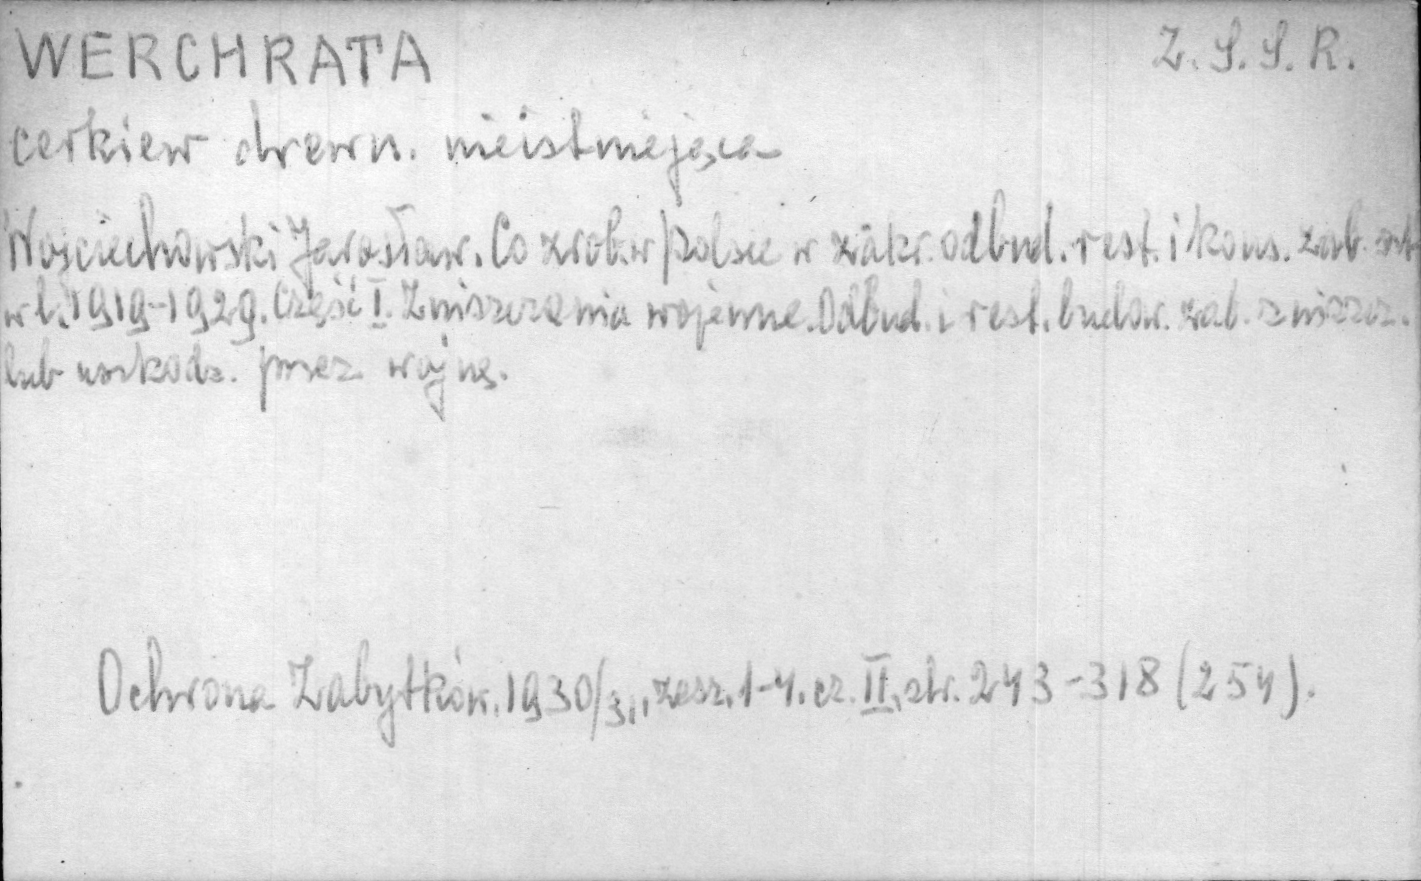 WERCHRATA Z.S.S.R.
cerkiew drewn. nieistniejąca
Wojciechowski Jarosław. Co zrob. w Polsce w zakr. odbud. rest. i kons. zab. szt.
w l. 1919-1929. Część I. Zniszczenia wojenne. Odbud. i rest. budow. zab. zniszcz.
lub uszkodz. przez wojnę.
Ochrona Zabytków. 1930/31, zesz. 1-4. cz. II, str. 243-318 (254).